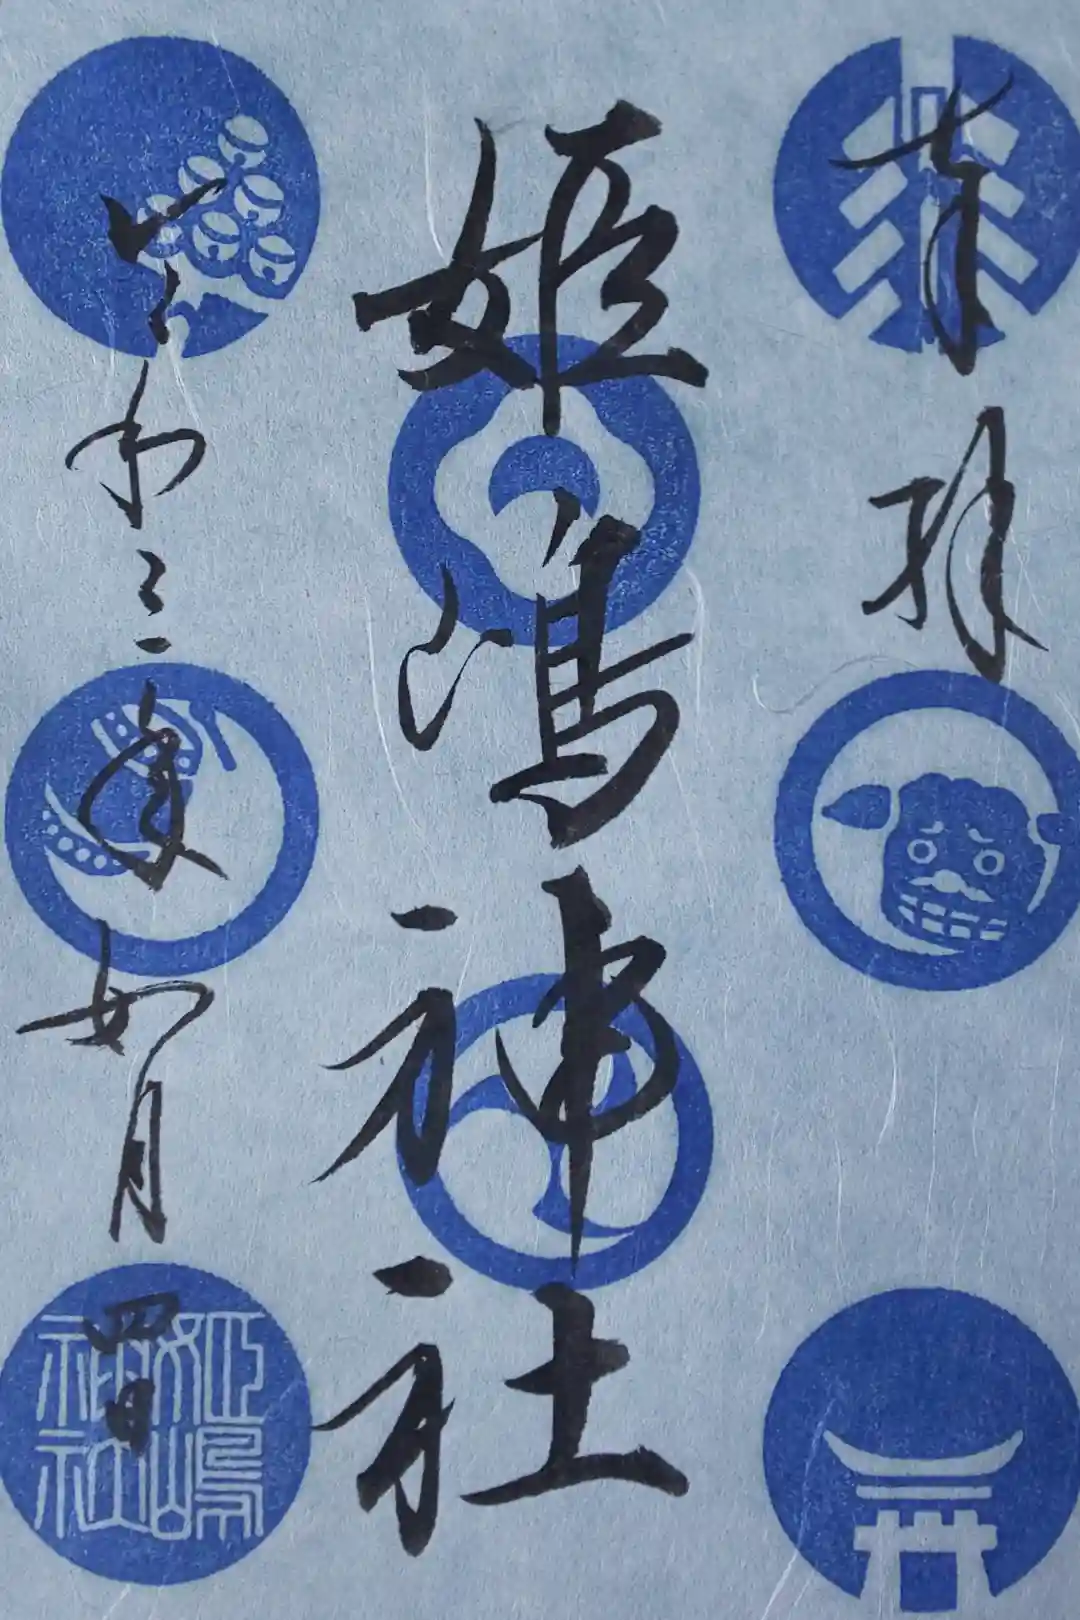 奉拝
姫嶋神社
令和三年如月四日
姫嶋
神社